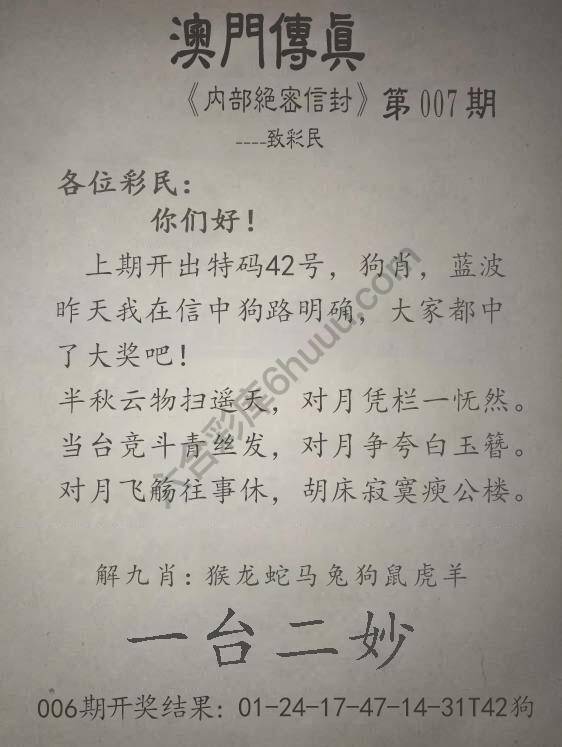 澳門傳真
《内部絕密信封》第007期
----致彩民
各位彩民：
你们好！
上期开出特码42号，狗肖，蓝波
昨天我在信中狗路明确，大家都中
了大奖吧！
半秋云物扫遥天，对月凭栏一怃然。
当台竞斗青丝发，对月争夸白玉簪。
对月飞觞往事休，胡床寂寞瘐公楼。
解九肖：猴龙蛇马兔狗鼠虎羊
一台二妙
006期开奖结果：01-24-17-47-14-31T42狗
六合彩库6huuu.com